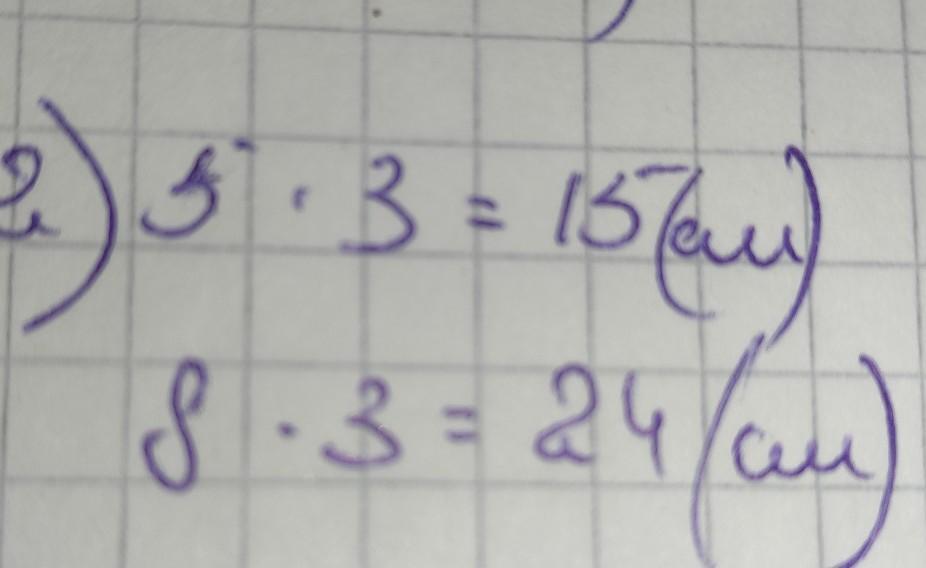 2) 5 · 3 = 15 (см)
8 · 3 = 24 (см)